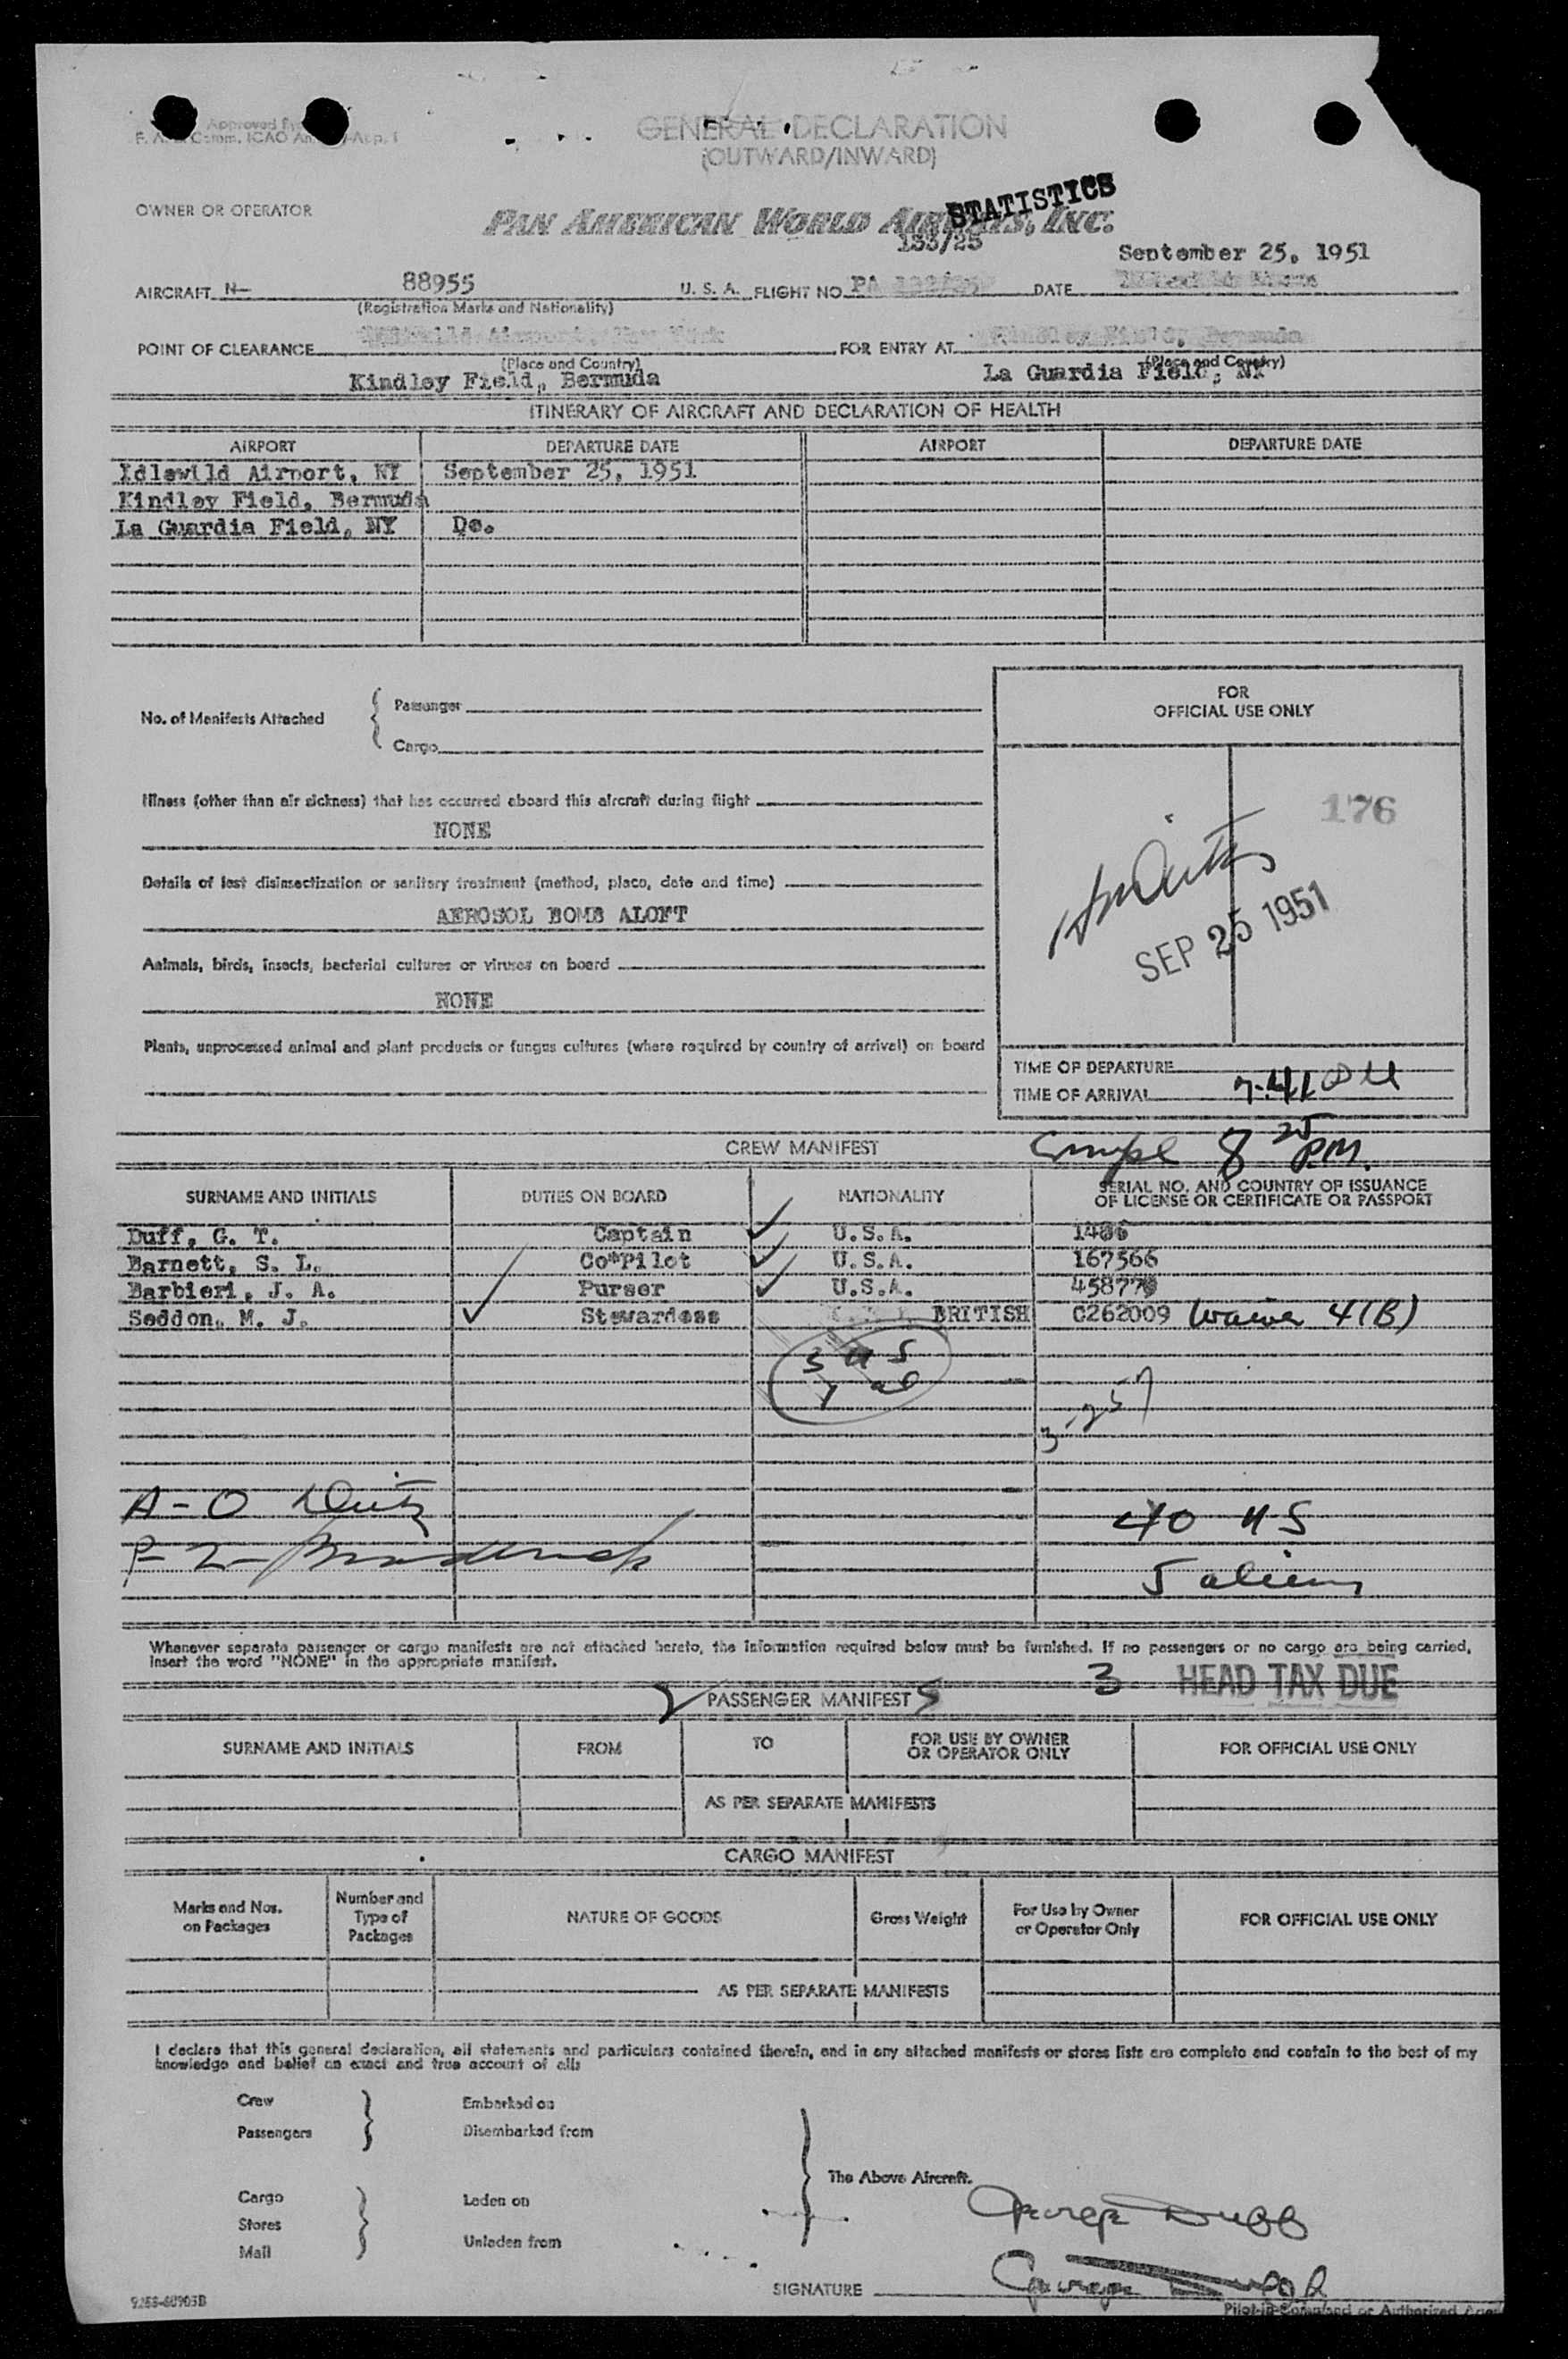 Approved
Comm. ICAO
GENERAL DECLARATION
(OUTWARD/INWARD)
OWNER OR OPERATOR
PAN AMERICAN WORLD AIRWAYS, INC.
STATISTICS
133/25
September 25, 1951
AIRCRAFT N- 88955 U. S. A. FLIGHT NO. PA DATE
(Registration Marks and Nationality)
POINT OF CLEARANCE FOR ENTRY AT
(Place and Country) (Place and Country)
Kindley Field, Bermuda La Guardia Field, NY
ITINERARY OF AIRCRAFT AND DECLARATION OF HEALTH
AIRPORT DEPARTURE DATE AIRPORT DEPARTURE DATE
Idlewild Airport, NY September 25, 1951
Kindley Field, Bermuda
La Guardia Field, NY Do.
FOR
OFFICIAL USE ONLY
No. of Manifests Attached
Passenger
Cargo
Illness (other than air sickness) that has occurred aboard this aircraft during flight
NONE
176
Details of last disinsectization or sanitary treatment (method, place, date and time)
AEROSOL BOMB ALOFT
SEP 25 1951
Animals, birds, insects, bacterial cultures or viruses on board
NONE
Plants, unprocessed animal and plant products or fungus cultures (where required by country of arrival) on board
TIME OF DEPARTURE
TIME OF ARRIVAL 7:41
CREW MANIFEST
8 25 P.M.
SURNAME AND INITIALS DUTIES ON BOARD NATIONALITY SERIAL NO. AND COUNTRY OF ISSUANCE
OF LICENSE OR CERTIFICATE OR PASSPORT
Duff, G. T. Captain U.S.A. 1406
Barnett, S. L. Co*Pilot U.S.A. 167566
Barbieri, J. A. Purser U.S.A. 45877
Seddon, M. J. Stewardess BRITISH C262009 Waiver 4(B)
3 US
1 al
3-257
A-O
P-2-
40 US
5 aliens
Whenever separate passenger or cargo manifests are not attached hereto, the information required below must be furnished. If no passengers or no cargo are being carried,
insert the word "NONE" in the appropriate manifest.
3 HEAD TAX DUE
2 PASSENGER MANIFEST S
SURNAME AND INITIALS FROM TO FOR USE BY OWNER
OR OPERATOR ONLY FOR OFFICIAL USE ONLY
AS PER SEPARATE MANIFESTS
CARGO MANIFEST
Marks and Nos.
on Packages
Number and
Type of
Packages
NATURE OF GOODS Gross Weight For Use by Owner
or Operator Only FOR OFFICIAL USE ONLY
AS PER SEPARATE MANIFESTS
I declare that this general declaration, all statements and particulars contained therein, and in any attached manifests or stores lists are complete and contain to the best of my
knowledge and belief an exact and true account of all:
Crew Embarked on
Passengers Disembarked from
The Above Aircraft.
Cargo Laden on
Stores
Mail Unladen from
George Duff
SIGNATURE George Duff
Pilot-in-Command or Authorized Agent
9255-60903B